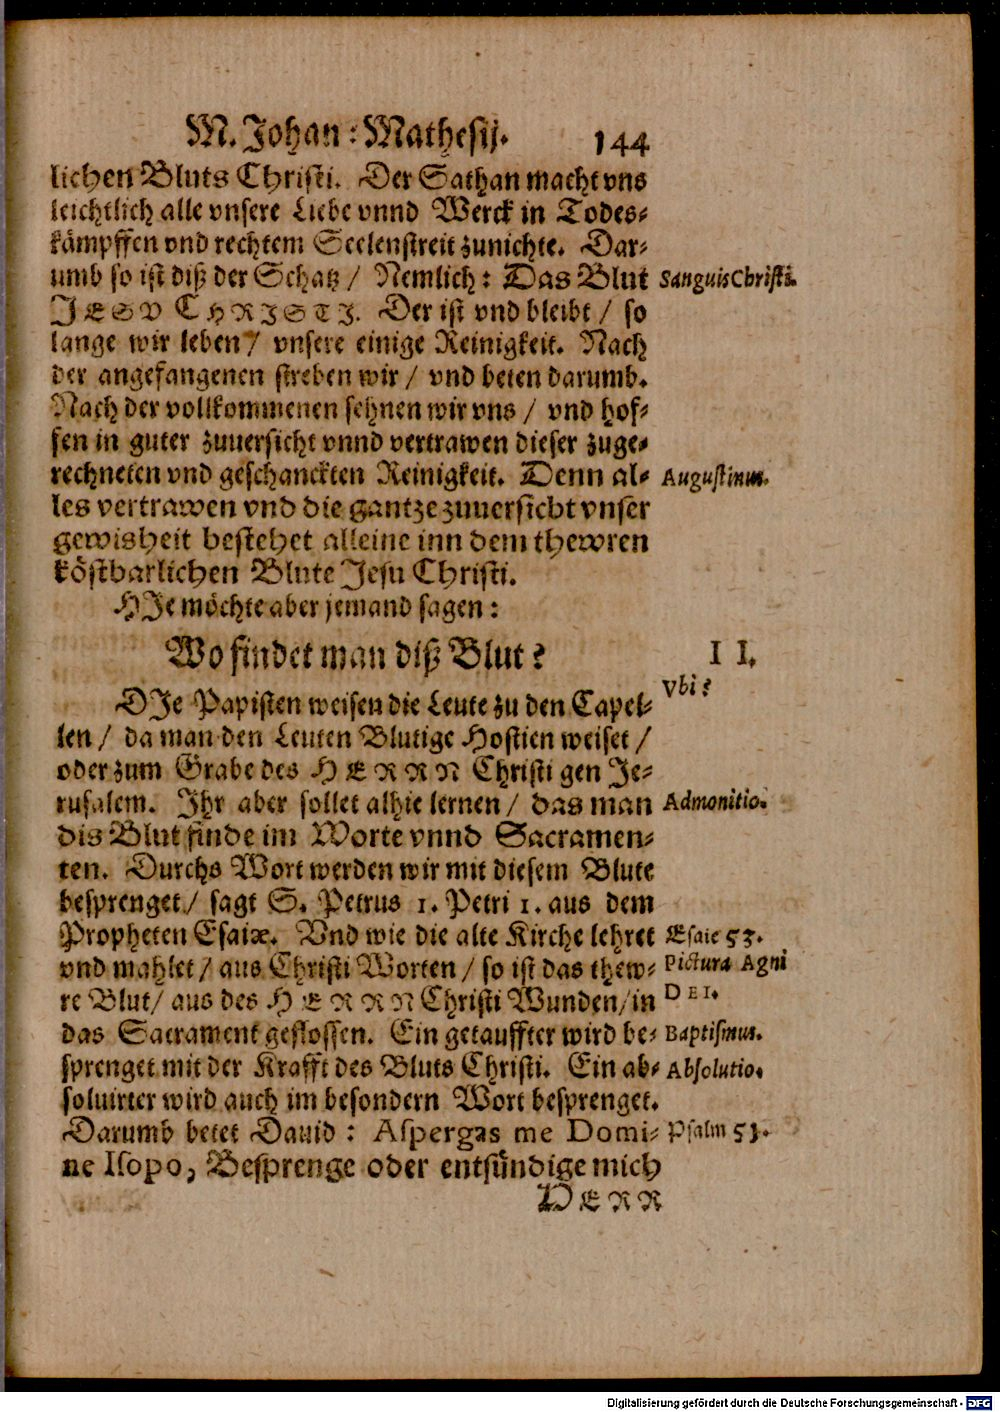 M. Johan: Mathesij. 144
lichen Bluts Christi. Der Sathan macht vns
leichtlich alle vnsere Liebe vnnd Werck in Todes-
kämpffen vnd rechtem Seelenstreit zunichte. Dar-
umb so ist diß der Schatz / Nemlich: Das Blut
Sanguis Christi.
JESV CHRISTI. Der ist vnd bleibt / so
lange wir leben / vnsere einige Reinigkeit. Nach
der angefangenen streben wir / vnd beten darumb.
Nach der vollkommenen sehnen wir vns / vnd hof-
fen in guter zuuersicht vnnd vertrawen dieser zuge-
rechneten vnd geschanckten Reinigkeit. Denn al-
Augustinus.
les vertrawen vnd die gantze zuuersicht vnser
gewisheit bestehet alleine inn dem thewren
köstbarlichen Blute Jesu Christi.
HJe möchte aber jemand sagen:
Wo findet man diß Blut?
II.
Vbi?
DJe Papisten weisen die Leute zu den Capel-
len / da man den Leuten Blutige Hostien weiset /
oder zum Grabe des HERRN Christi gen Je-
rusalem. Jhr aber sollet alhie lernen / das man
Admonitio.
dis Blut finde im Worte vnnd Sacramen-
ten. Durchs Wort werden wir mit diesem Blute
besprenget / sagt S. Petrus 1. Petri 1. aus dem
Propheten Esaiæ. Vnd wie die alte Kirche lehret
Esaie 53.
vnd mahlet / aus Christi Worten / so ist das thew-
Pictura Agni
re Blut / aus des HERRN Christi Wunden / in
DEI.
das Sacrament geflossen. Ein getauffter wird be-
Baptismus.
sprenget mit der Krafft des Bluts Christi. Ein ab-
Absolutio.
soluirter wird auch im besondern Wort besprenget.
Darumb betet Dauid: Asperges me Domi-
Psalm 51.
ne Isopo, Besprenge oder entsündige mich
HERR
Digitalisierung gefördert durch die Deutsche Forschungsgemeinschaft - DFG